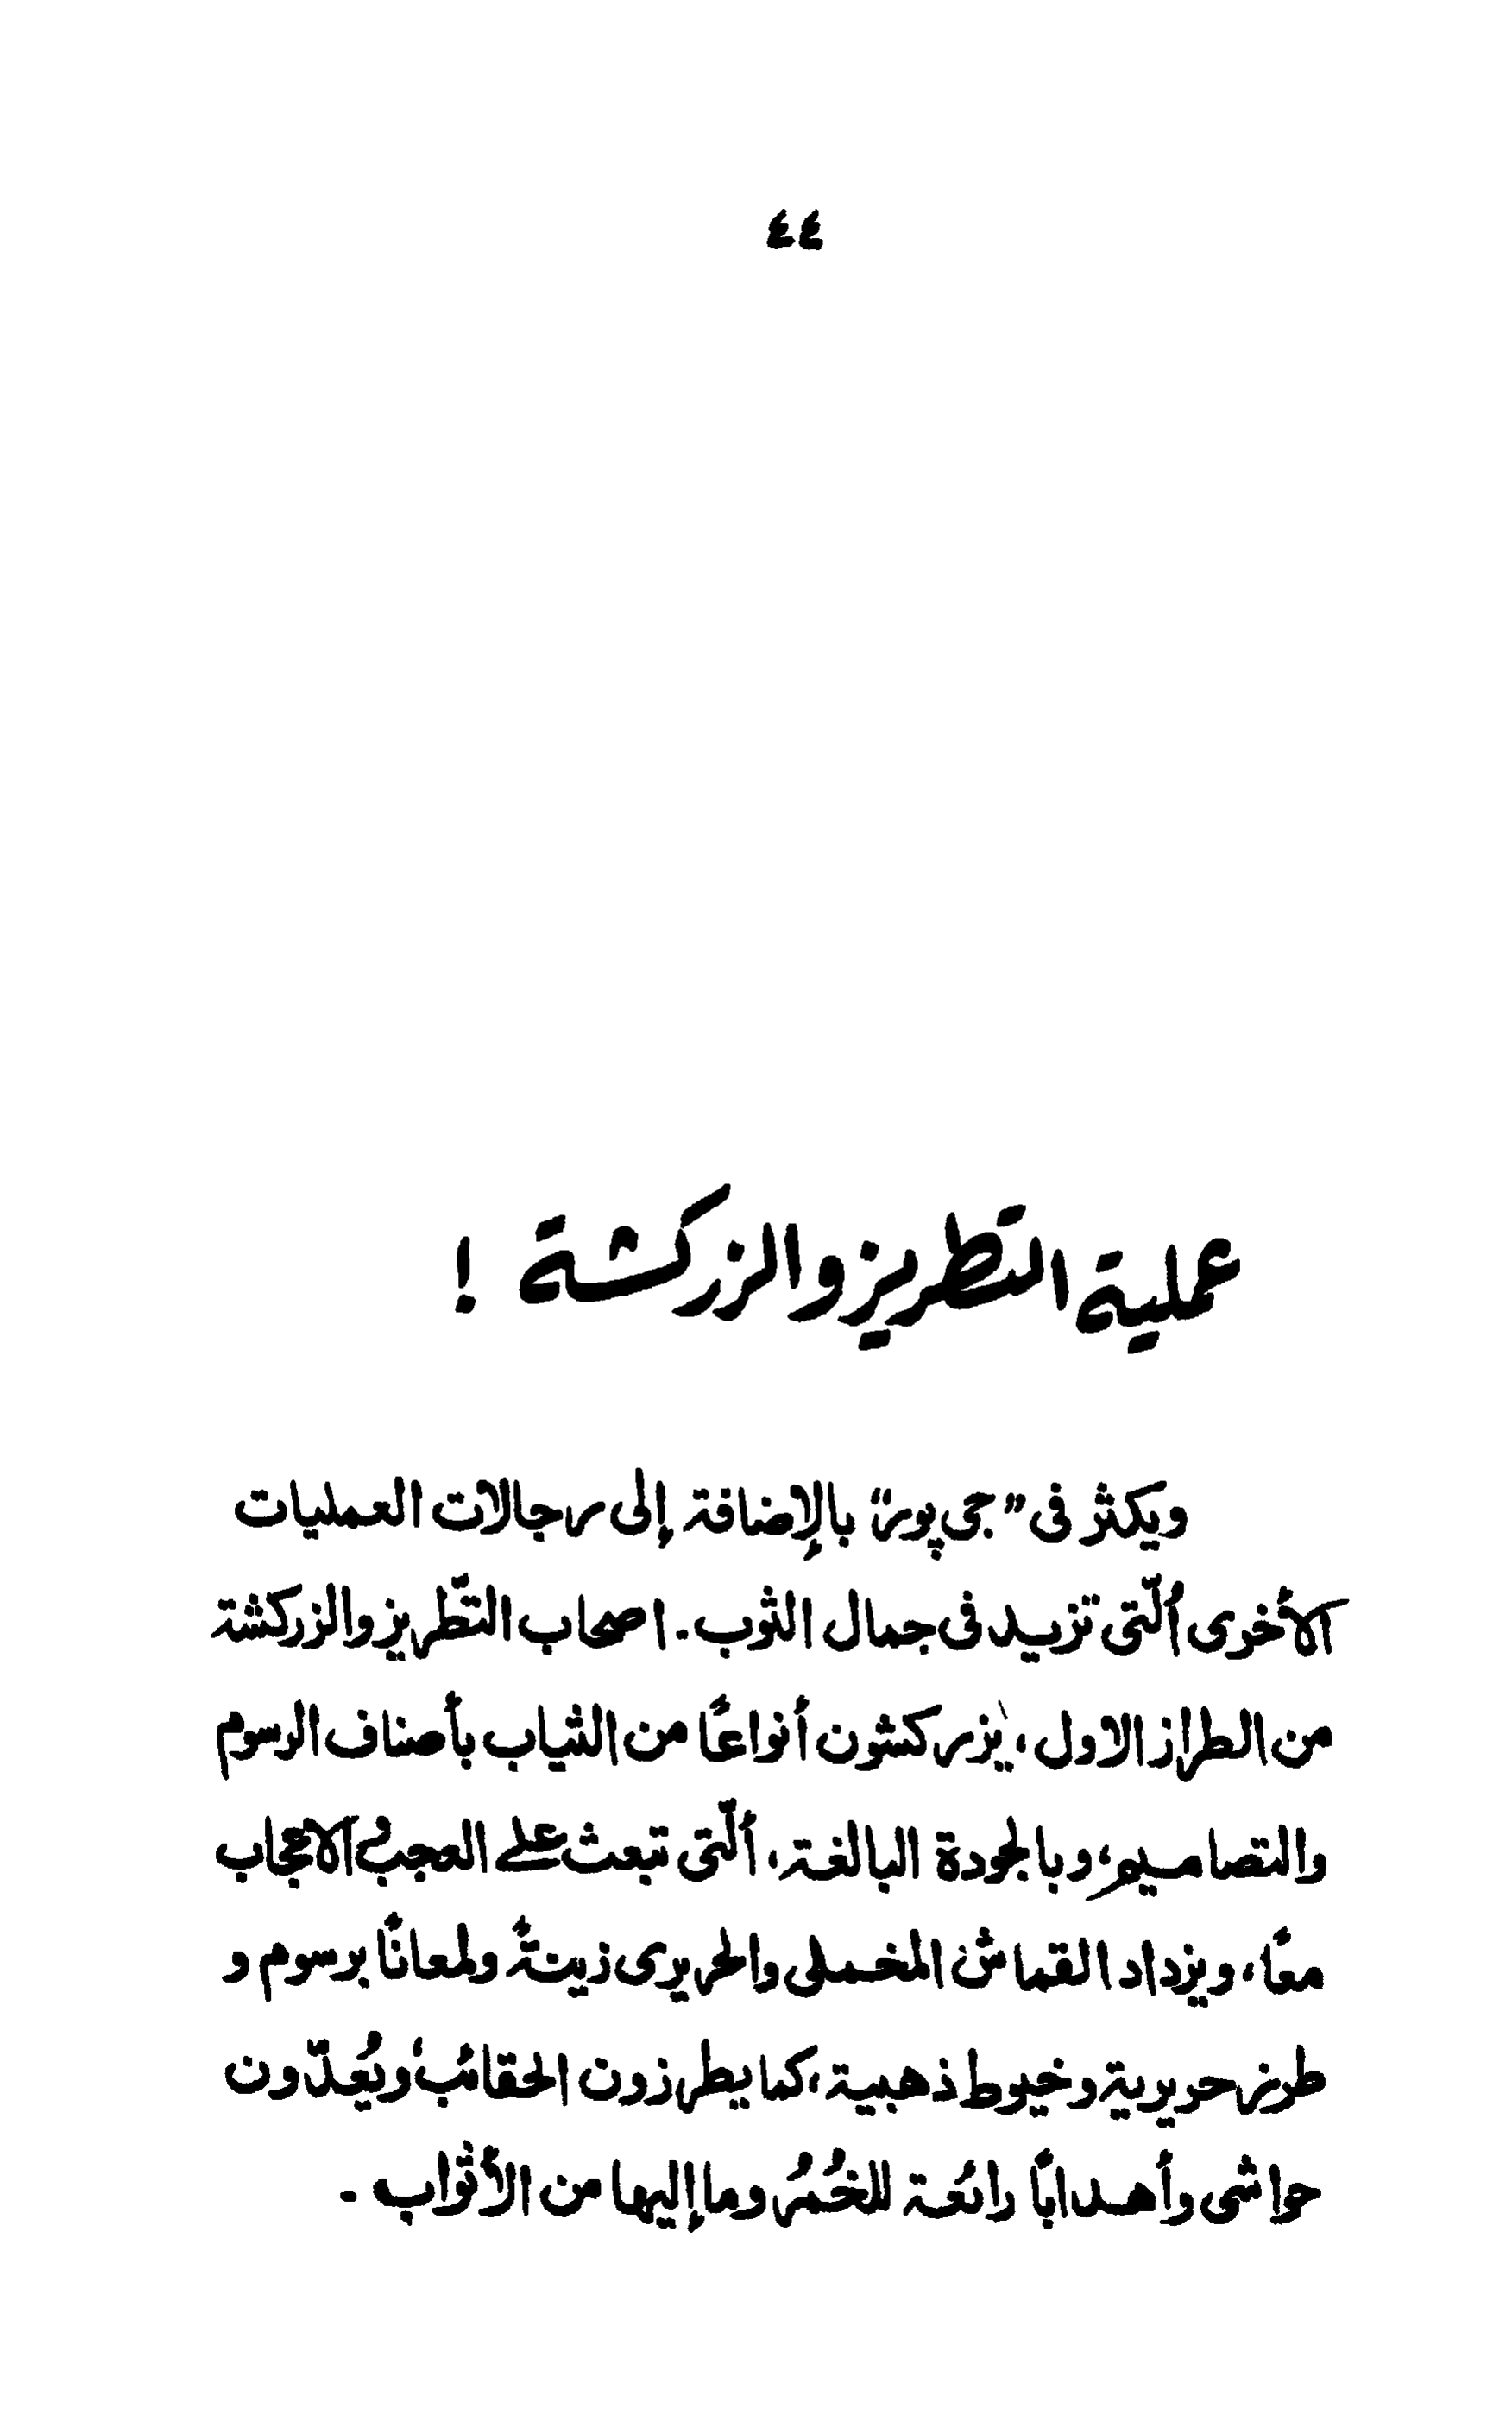 ٤٤
عملية التطريز والزركشة !
ويكثر فى "جى پور" بالإضافة إلى رجالات العمليات
الأخرى ألّتى تزيد فى جمال الثوب. اصحاب التطّريز والزركشة
من الطراز الاول ، يزركشون أنواعًا من الثياب بأصناف الرسوم
والتصاميم، وبالجودة البالغة، ألّتى تبعث على العجب والاعجاب
معًا، ويزداد القماش المخملى والحريرى زينةً ولمعانًا برسوم و
طرز حريرية وخيوط ذهبية، كما يطرزون الحقائب، ويُعدّون
حواشى وأهدابًا رائعة للخُمُر وما إليها من الأثواب .